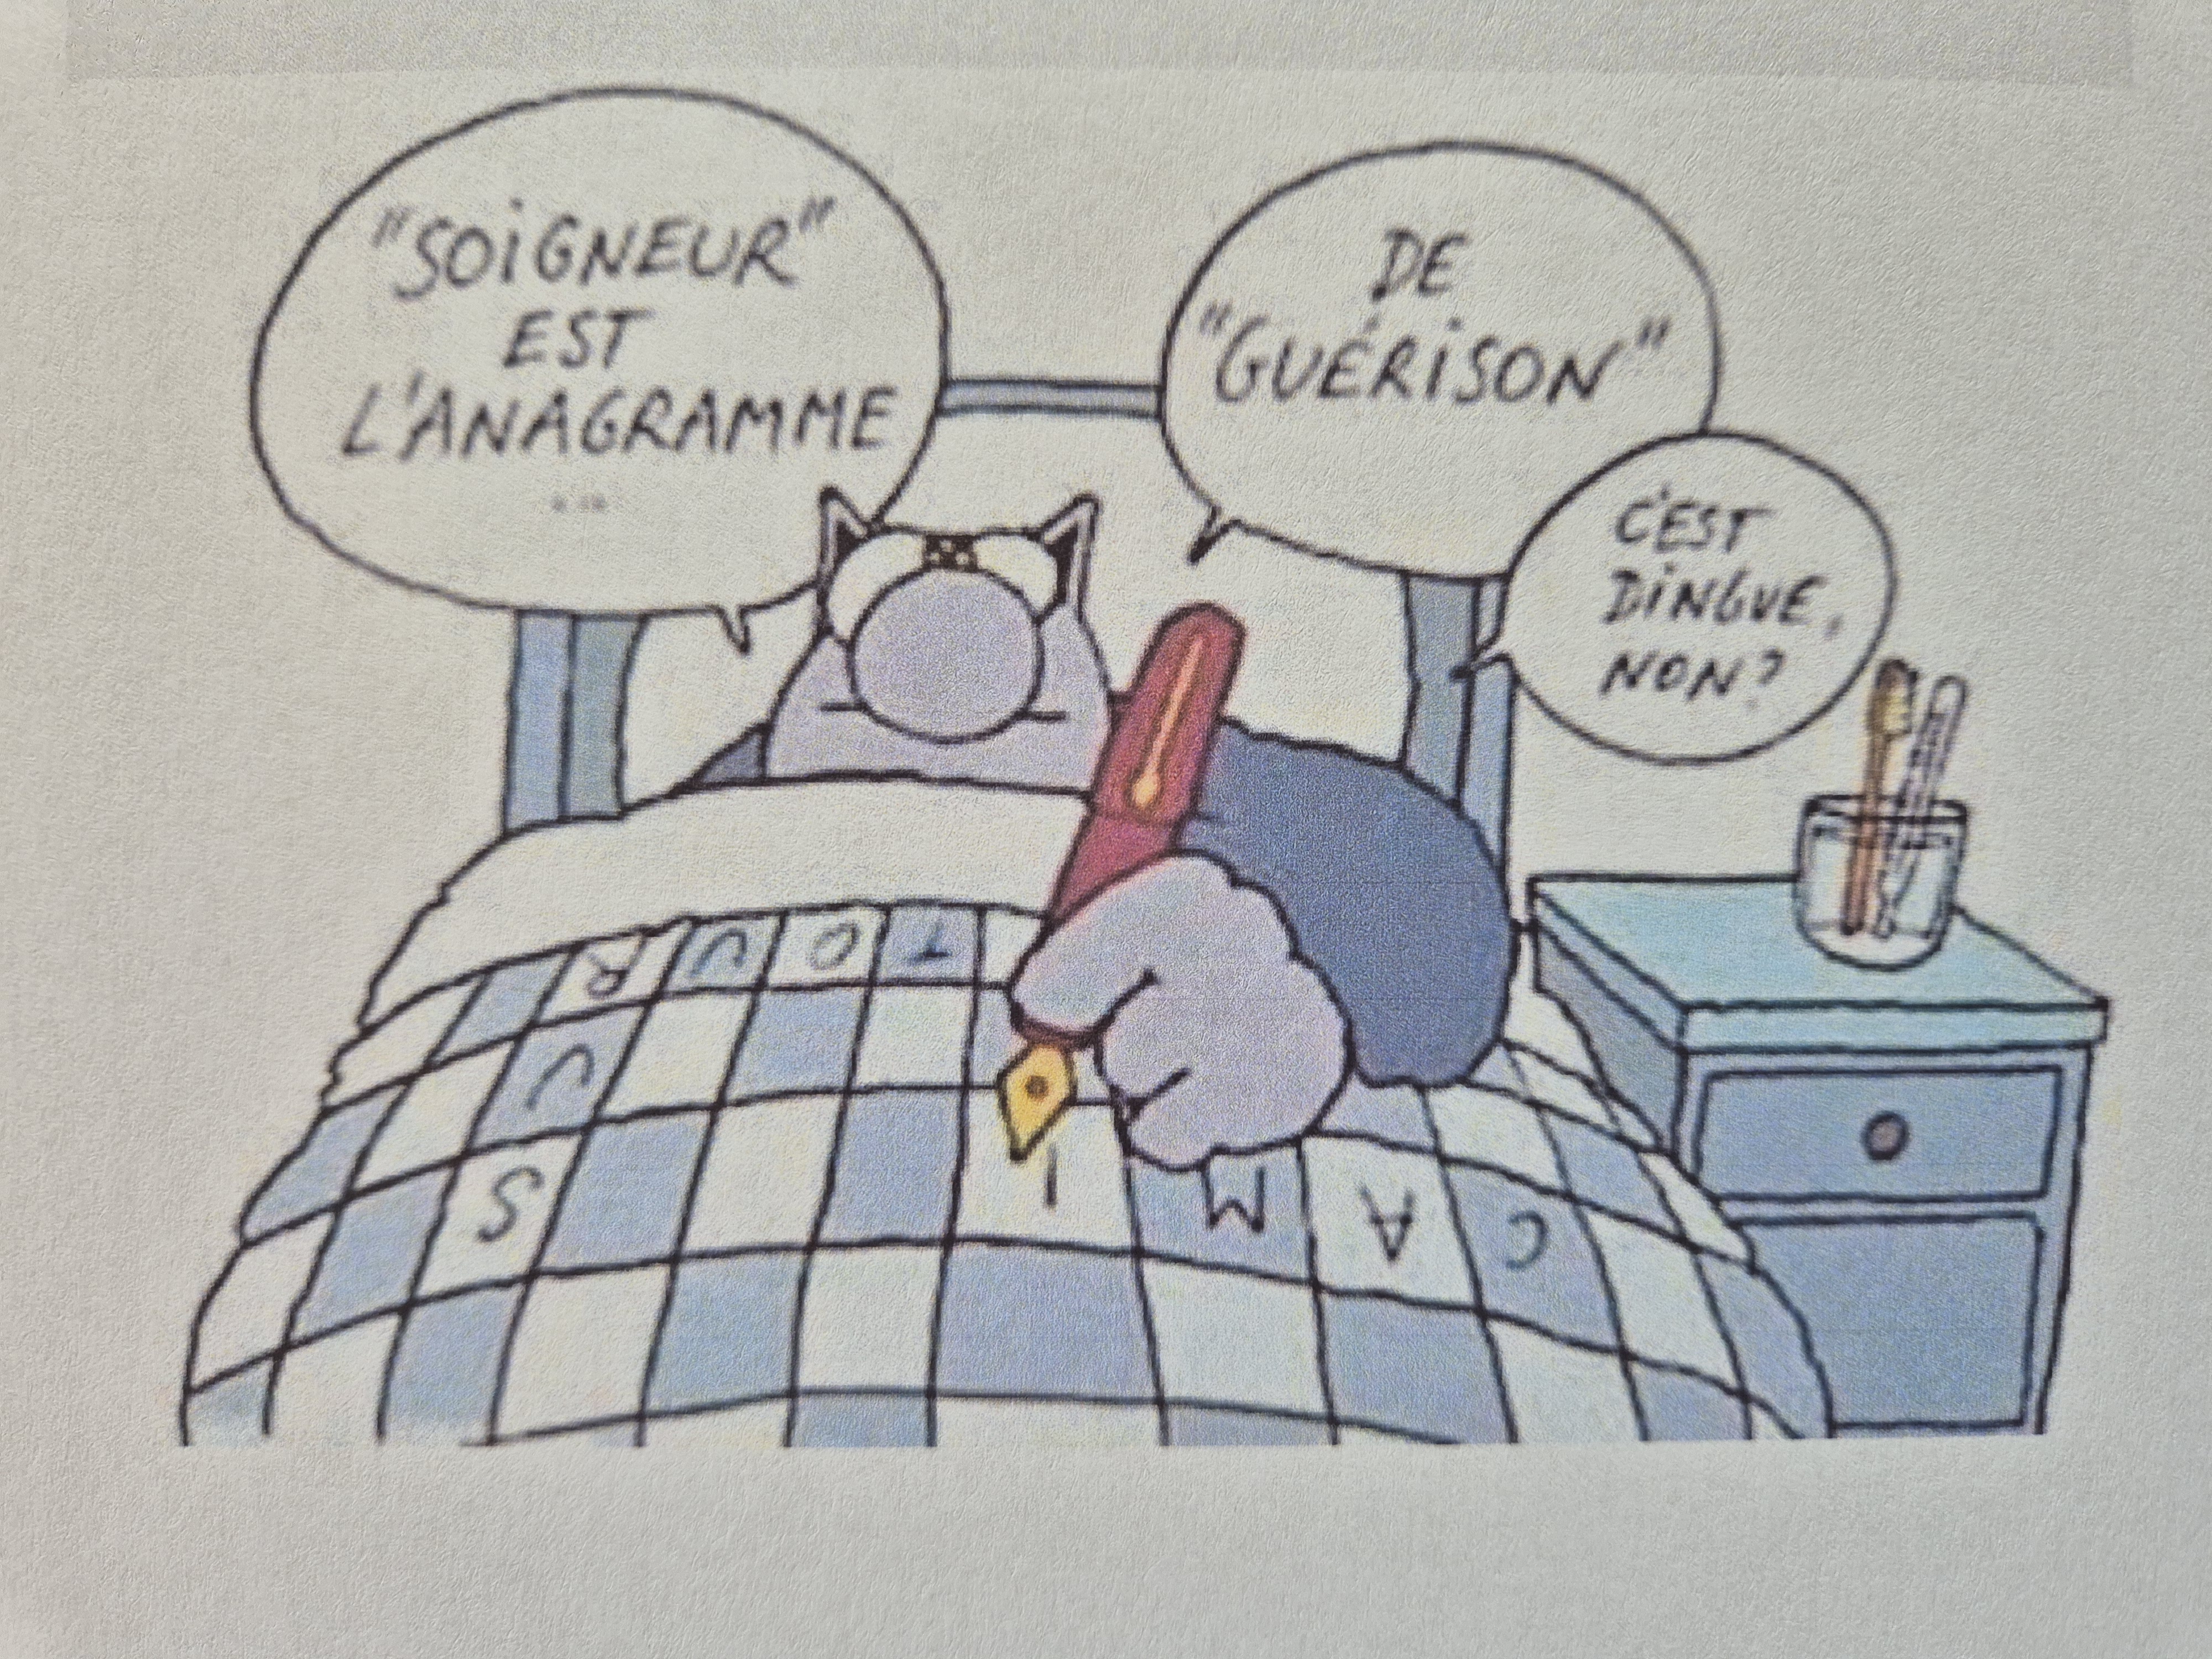 "SOIGNEUR"
EST
L'ANAGRAMME
...
DE
"GUÉRISON"
C'EST
DINGUE,
NON?
TOUR
U
S
CAMI